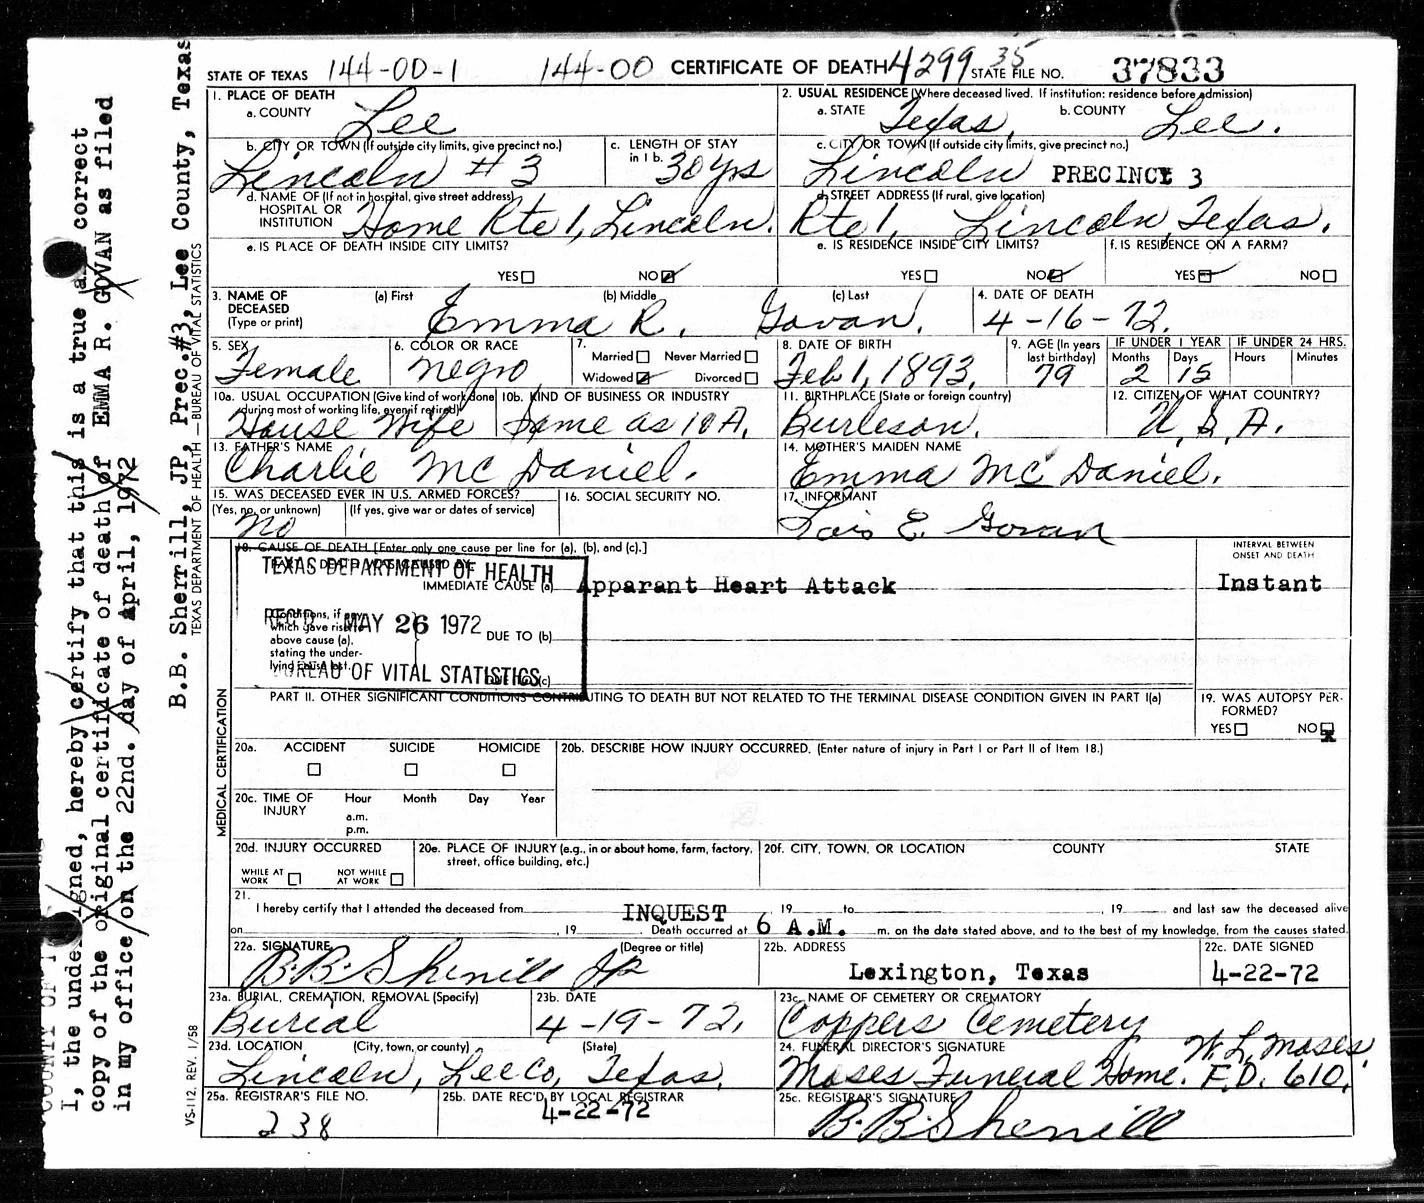 STATE OF TEXAS 144-00-1 144-00 CERTIFICATE OF DEATH 4299 35 STATE FILE NO. 37833
1. PLACE OF DEATH
a. COUNTY Lee
2. USUAL RESIDENCE (Where deceased lived. If institution: residence before admission)
a. STATE Texas, b. COUNTY Lee.
b. CITY OR TOWN (If outside city limits, give precinct no.) Lincoln #3
c. LENGTH OF STAY in 1 b. 30 yrs
c. CITY OR TOWN (If outside city limits, give precinct no.) Lincoln PRECINCT 3
d. NAME OF (If not in hospital, give street address) HOSPITAL OR INSTITUTION Home Rte 1, Lincoln.
d. STREET ADDRESS (If rural, give location) Rte 1, Lincoln, Texas.
e. IS PLACE OF DEATH INSIDE CITY LIMITS?
YES NO
e. IS RESIDENCE INSIDE CITY LIMITS?
YES NO
f. IS RESIDENCE ON A FARM?
YES NO
3. NAME OF DECEASED (Type or print)
(a) First (b) Middle (c) Last
Emma R. Govan.
4. DATE OF DEATH
4-16-72.
5. SEX
Female
6. COLOR OR RACE
negro
7.
Married Never Married
Widowed Divorced
8. DATE OF BIRTH
Feb 1, 1893.
9. AGE (In years last birthday)
79
IF UNDER 1 YEAR
Months Days
2 15
IF UNDER 24 HRS.
Hours Minutes
10a. USUAL OCCUPATION (Give kind of work done during most of working life, even if retired)
House Wife
10b. KIND OF BUSINESS OR INDUSTRY
Same as 10 A.
11. BIRTHPLACE (State or foreign country)
Burleson.
12. CITIZEN OF WHAT COUNTRY?
U.S.A.
13. FATHER'S NAME
Charlie Mc Daniel.
14. MOTHER'S MAIDEN NAME
Emma Mc Daniel.
15. WAS DECEASED EVER IN U.S. ARMED FORCES?
(Yes, no, or unknown) (If yes, give war or dates of service)
no
16. SOCIAL SECURITY NO.
17. INFORMANT
Lois E. Govan
18. CAUSE OF DEATH [Enter only one cause per line for (a), (b), and (c).]
PART I. DEATH WAS CAUSED BY:
IMMEDIATE CAUSE (a) Apparant Heart Attack
INTERVAL BETWEEN ONSET AND DEATH
Instant
TEXAS DEPARTMENT OF HEALTH
REC'D MAY 26 1972
BUREAU OF VITAL STATISTICS
Conditions, if any, which gave rise to above cause (a), stating the under-lying cause last.
DUE TO (b)
DUE TO (c)
PART II. OTHER SIGNIFICANT CONDITIONS CONTRIBUTING TO DEATH BUT NOT RELATED TO THE TERMINAL DISEASE CONDITION GIVEN IN PART I(a)
19. WAS AUTOPSY PER-FORMED?
YES NO X
MEDICAL CERTIFICATION
20a. ACCIDENT SUICIDE HOMICIDE
20b. DESCRIBE HOW INJURY OCCURRED. (Enter nature of injury in Part I or Part II of Item 18.)
20c. TIME OF INJURY Hour Month Day Year
a.m.
p.m.
20d. INJURY OCCURRED
WHILE AT WORK NOT WHILE AT WORK
20e. PLACE OF INJURY (e.g., in or about home, farm, factory, street, office building, etc.)
20f. CITY, TOWN, OR LOCATION COUNTY STATE
21.
I hereby certify that I attended the deceased from INQUEST , 19 to , 19 and last saw the deceased alive
on , 19 Death occurred at 6 A.M. m. on the date stated above, and to the best of my knowledge, from the causes stated.
22a. SIGNATURE (Degree or title)
B.B. Sherrill JP
22b. ADDRESS
Lexington, Texas
22c. DATE SIGNED
4-22-72
23a. BURIAL, CREMATION, REMOVAL (Specify)
Burial
23b. DATE
4-19-72.
23c. NAME OF CEMETERY OR CREMATORY
Coppers Cemetery
23d. LOCATION (City, town, or county) (State)
Lincoln, Lee Co, Texas.
24. FUNERAL DIRECTOR'S SIGNATURE W. L. Moses
Moses Funeral Home. F.D. 610.
25a. REGISTRAR'S FILE NO.
238
25b. DATE REC'D BY LOCAL REGISTRAR
4-22-72
25c. REGISTRAR'S SIGNATURE
B.B. Sherrill
VS-112. REV. 1/58
TEXAS DEPARTMENT OF HEALTH — BUREAU OF VITAL STATISTICS
COUNTY OF
I, the undersigned, hereby certify that this is a true a correct
copy of the original certificate of death of EMMA R. GOVAN as filed
in my office on the 22nd. day of April, 1972
B.B. Sherrill, JP, Prec.#3, Lee County, Texas